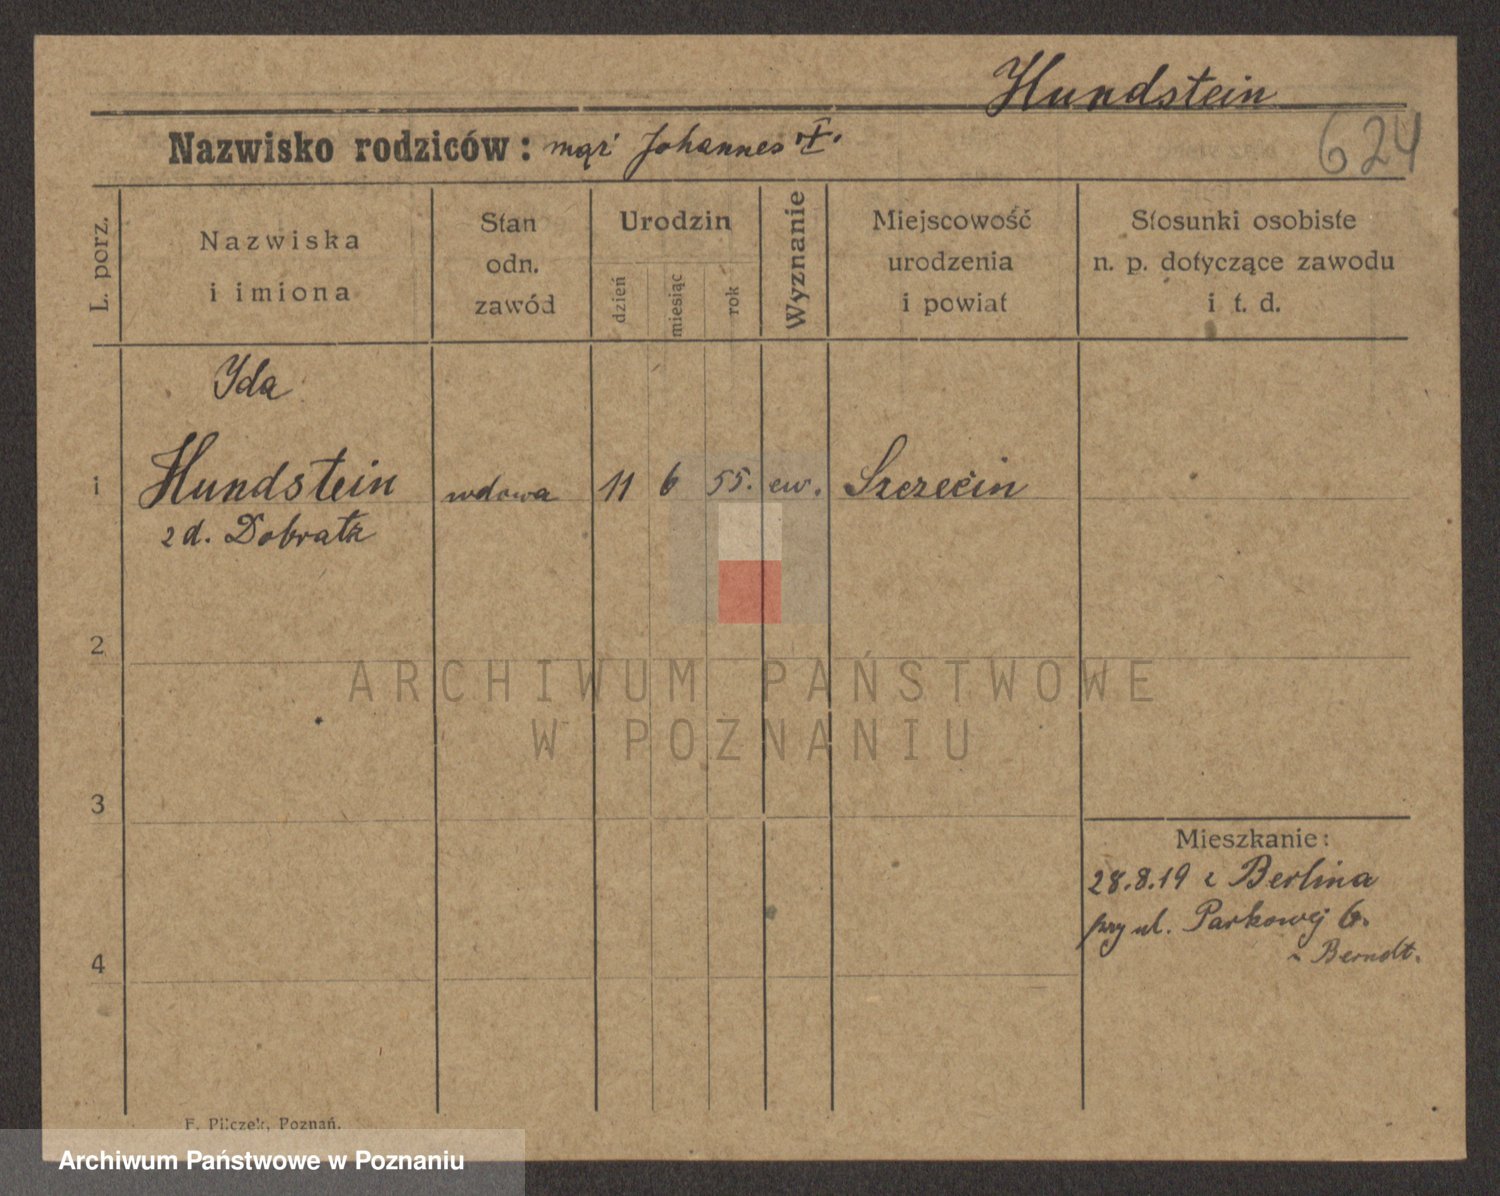 Hundstein
624
Nazwisko rodziców: mąż Johannes †.
L. porz.
Nazwiska
i imiona
Stan
odn.
zawód
Urodzin
dzień
miesiąc
rok
Wyznanie
Miejscowość
urodzenia
i powiat
Stosunki osobiste
n. p. dotyczące zawodu
i t. d.
Ida
1 Hundstein wdowa 11 6 55. ew. Szczecin
z d. Dobratz
2
ARCHIWUM PAŃSTWOWE
W POZNANIU
3
Mieszkanie:
28.8.19 z Berlina
przy ul. Parkowej 6.
Berndt.
4
F. Pilczek, Poznań.
Archiwum Państwowe w Poznaniu